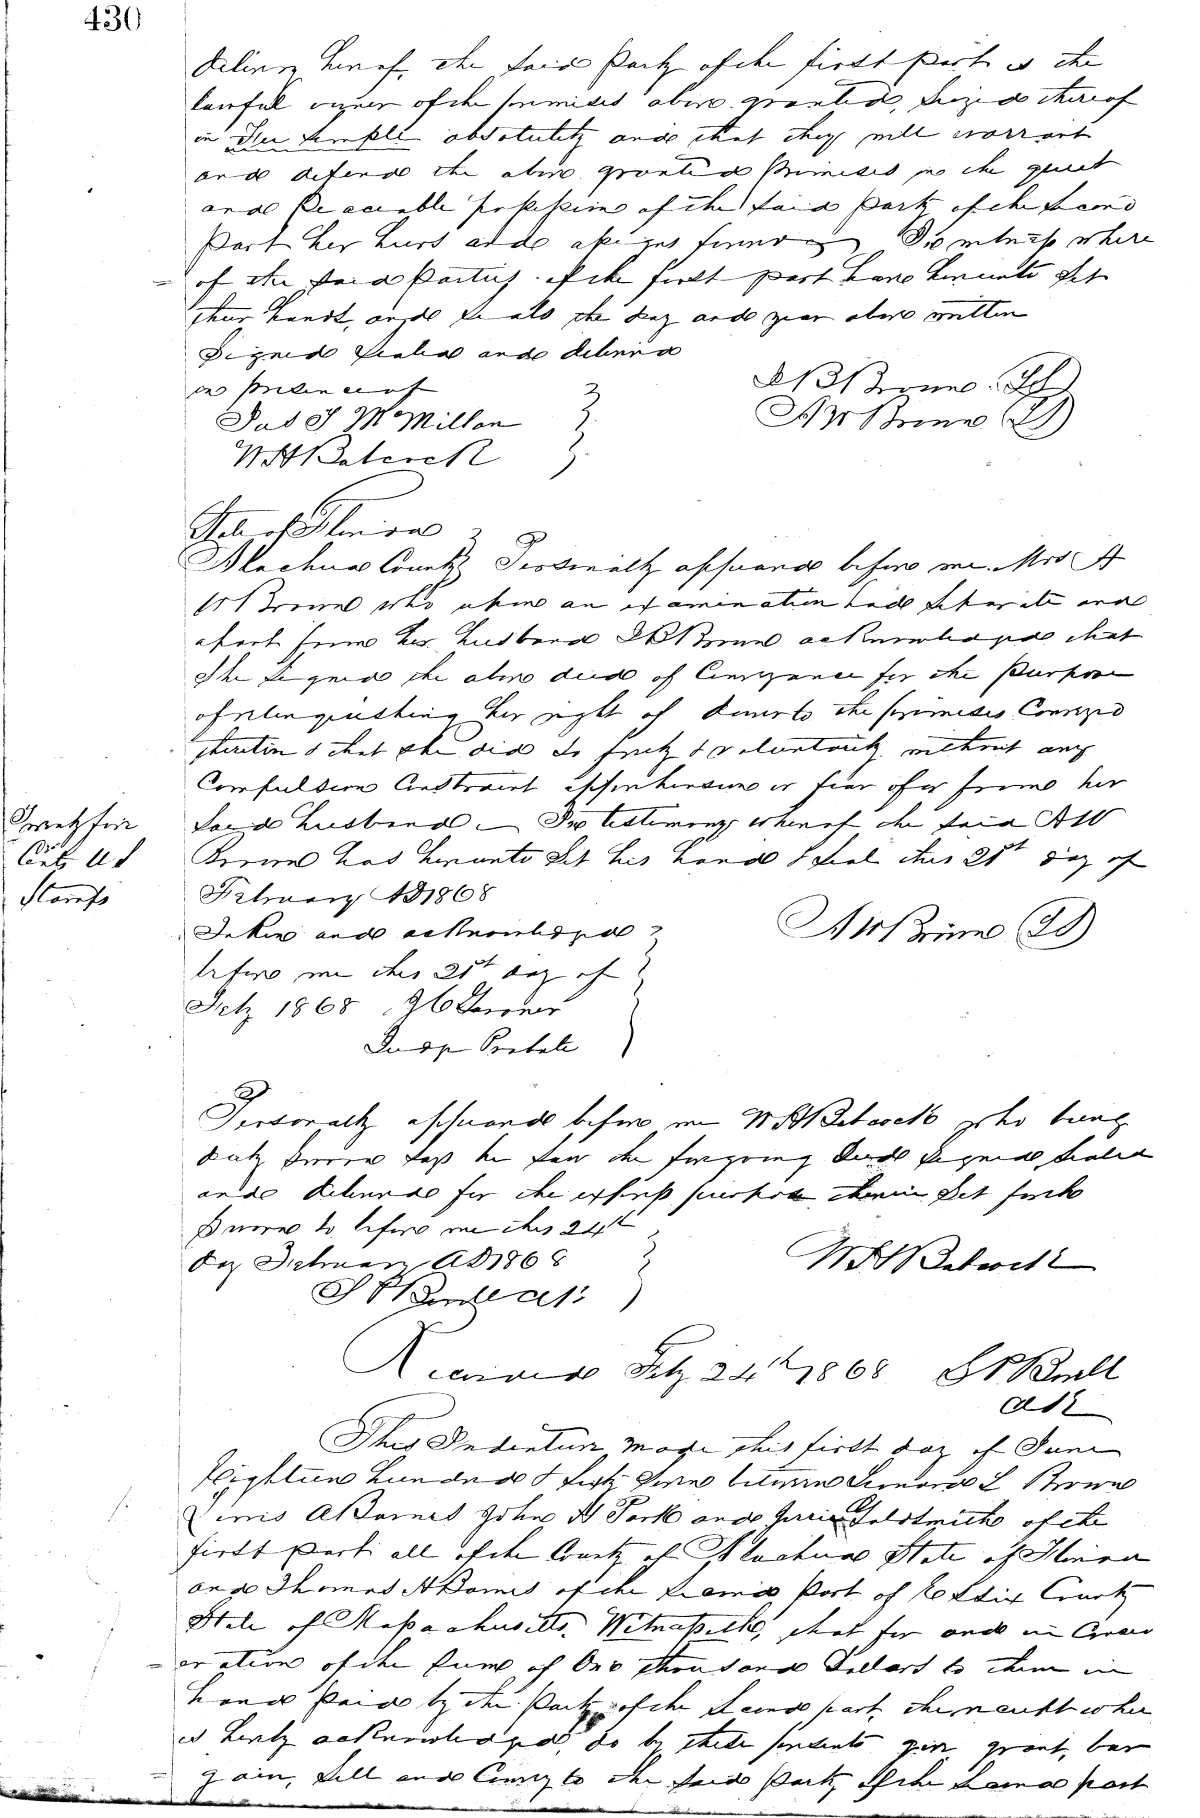 430
delivery hereof, the said Party of the first part is the
lawful owner of the premises above granted, Seized thereof
in Fee Simple absolutely and that they will warrant
and defend the above granted Premises in the quiet
and Peaceable possession of the said Party of the Second
Part her heirs and assigns forever In witness where
of the said Parties of the first part have hereunto Set
their hands, and seals the day and year above written
Signed Sealed and delivered
in presence of
Jas S McMillan
W H Babcock
B Brown
A W Brown
State of Florida
Alachua County Personally appeared before me Mrs A
W Brown who upon an examination had Separate and
apart from her husband Brown acknowledged that
She signed the above deed of Conveyance for the Purpose
of relinquishing her right of dower to the premises Conveyed
therein & that she did so freely & voluntarily without any
Compulsion Constraint apprehension or fear of or from her
Said husband. In testimony whereof the said A W
Brown has hereunto Set his hand & seal this 21st day of
February AD 1868
Twenty five
Cents U S
Stamps
Taken and acknowledged
before me this 21st day of
Feby 1868
Judge Probate
A W Brown
Personally appeared before me W H Babcock who being
duly Sworn says he saw the foregoing Deed signed, sealed
and delivered for the express purpose therein Set forth
Sworn to before me this 24th
day February AD 1868
W H Babcock
Received Feby 24th 1868
This Indenture made this first day of June
Eighteen hundred & Sixty Seven between Leonard L Brown
A Barnes John H Pork and Goldsmith of the
first Part all of the County of Alachua State of Florida
and Thomas A Barnes of the Second Part of Essex County
State of Massachusetts. Witnesseth, that for and in Consid
eration of the Sum of One thousand Dollars to them in
hand Paid by the Party of the Second part the receipt where
is hereby acknowledged, do by these presents give, grant, bar
gain, Sell and Convey to the said Party of the Second part